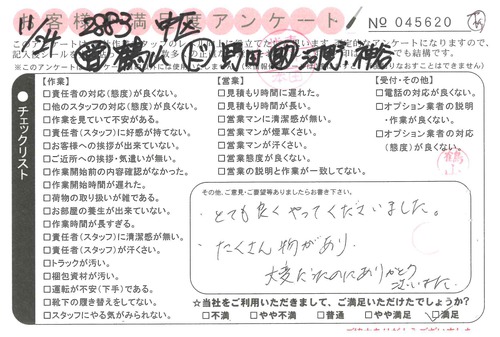 お客様満足度アンケート
No 045620
11/24 2383 中区
【作業】
□責任者の対応(態度)が良くない。
□他のスタッフの対応(態度)が良くない。
□作業を見ていて不安がある。
□責任者(スタッフ)に好感が持てない。
□お客様への挨拶が出来ていない。
□ご近所への挨拶・気遣いが無い。
□作業開始前の内容確認がなかった。
□作業開始時間が遅れた。
□荷物の取り扱いが雑である。
□お部屋の養生が出来ていない。
□作業時間が長すぎる。
□責任者(スタッフ)に清潔感が無い。
□責任者(スタッフ)が汗くさい。
□トラックが汚い。
□梱包資材が汚い。
□運転が不安(下手)である。
□靴下の履き替えをしてない。
□スタッフにやる気がみられない。
チェックリスト
【営業】
□見積もり時間に遅れた。
□見積もり時間が長い。
□営業マンに清潔感が無い。
□営業マンが煙草くさい。
□営業マンが汗くさい。
□営業態度が良くない。
□営業の説明と作業が一致してない。
【受付・その他】
□電話の対応が良くない。
□オプション業者の説明
・作業が良くない。
□オプション業者の対応
(態度)が良くない。
その他、ご意見・ご要望等ありましたらお書き下さい。
・とても良くやってくださいました。
・たくさん物があり
大変だったのにありがとう
ございました。
☆当社をご利用いただきまして、ご満足いただけたでしょうか?
□不満 □やや不満 □普通 □やや満足 □満足